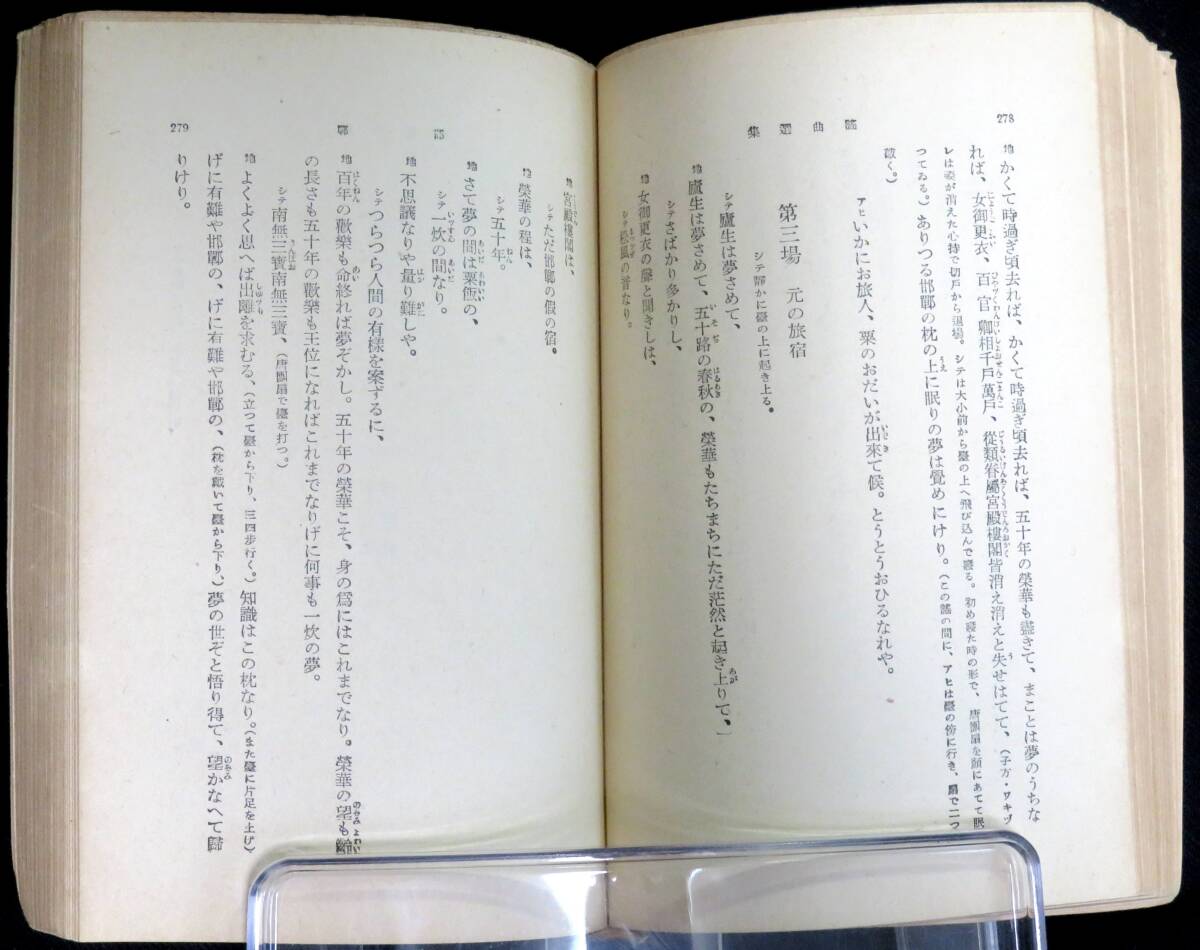 278
謠曲選集
地 かくて時過ぎ頃去れば、かくて時過ぎ頃去れば、五十年の榮華も盡きて、まことは夢のうちな
れば、女御更衣、百官卿相千戸萬戸、從類眷屬宮殿樓閣皆消え消えと失せはてて、(子方・ワキヅ
レは姿が消えた心持で切戸から退場。シテは大小前から臺の上へ飛び込んで寢る。初め寢た時の形で、唐團扇を顏にあてて眠
つてゐる。)ありつる邯鄲の枕の上に眠りの夢は覺めにけり。(この謠の間に、アヒは臺の傍に行き、扇で二つ
敲く。)
アヒ いかにお旅人、粟のおだいが出來て候。とうとうおひるなれや。
第三場 元の旅宿
シテ靜かに臺の上に起き上る。
シテ 廬生は夢さめて、
地 廬生は夢さめて、五十路の春秋の、榮華もたちまちにただ茫然と起き上りて、
シテ さばかり多かりし、
地 女御更衣の聲と聞きしは、
シテ 松風の音なり。
279
邯鄲
地 宮殿樓閣は、
シテ ただ邯鄲の假の宿。
地 榮華の程は、
シテ 五十年。
地 さて夢の間は粟飯の、
シテ 一炊の間なり。
地 不思議なりや量り難しや。
シテ つらつら人間の有樣を案ずるに、
地 百年の歡樂も命終れば夢ぞかし。五十年の榮華こそ、身の爲にはこれまでなり。榮華の望も齡
の長さも五十年の歡樂も王位になればこれまでなりげに何事も一炊の夢。
シテ 南無三寶南無三寶、(唐團扇で臺を打つ。)
地 よくよく思へば出離を求むる、(立つて臺から下り、三四步行く。)知識はこの枕なり。(また臺に片足を上げ)
げに有難や邯鄲の、げに有難や邯鄲の、(枕を戴いて臺から下り、)夢の世ぞと悟り得て、望かなへて歸
りけり。